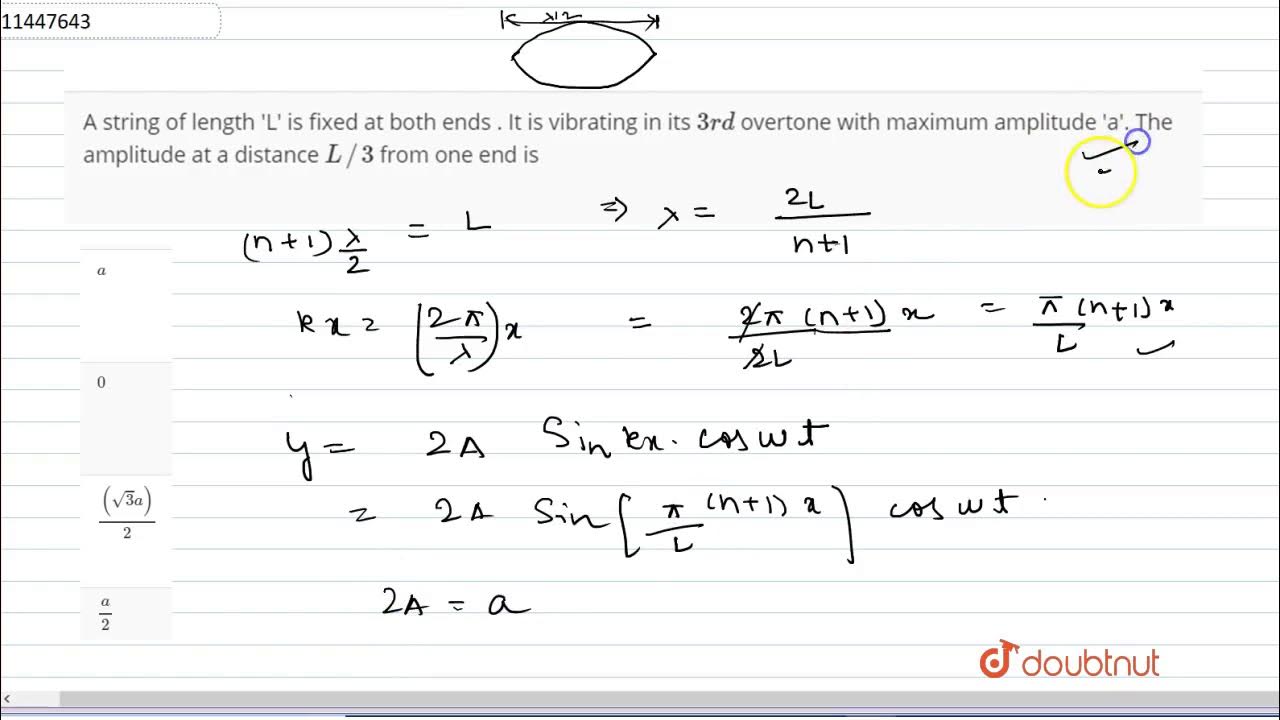 11447643
λ/2
A string of length 'L' is fixed at both ends . It is vibrating in its 3rd overtone with maximum amplitude 'a'. The
amplitude at a distance L / 3 from one end is
(n+1) λ/2 = L ⇒ λ = 2L/n+1
a
kx = (2π/λ)x = 2π (n+1) x/2L = π (n+1) x/L
0
y = 2A Sin kx. cos wt
(√3a)/2
= 2A Sin [π (n+1) x/L] cos wt
a/2
2A = a
doubtnut